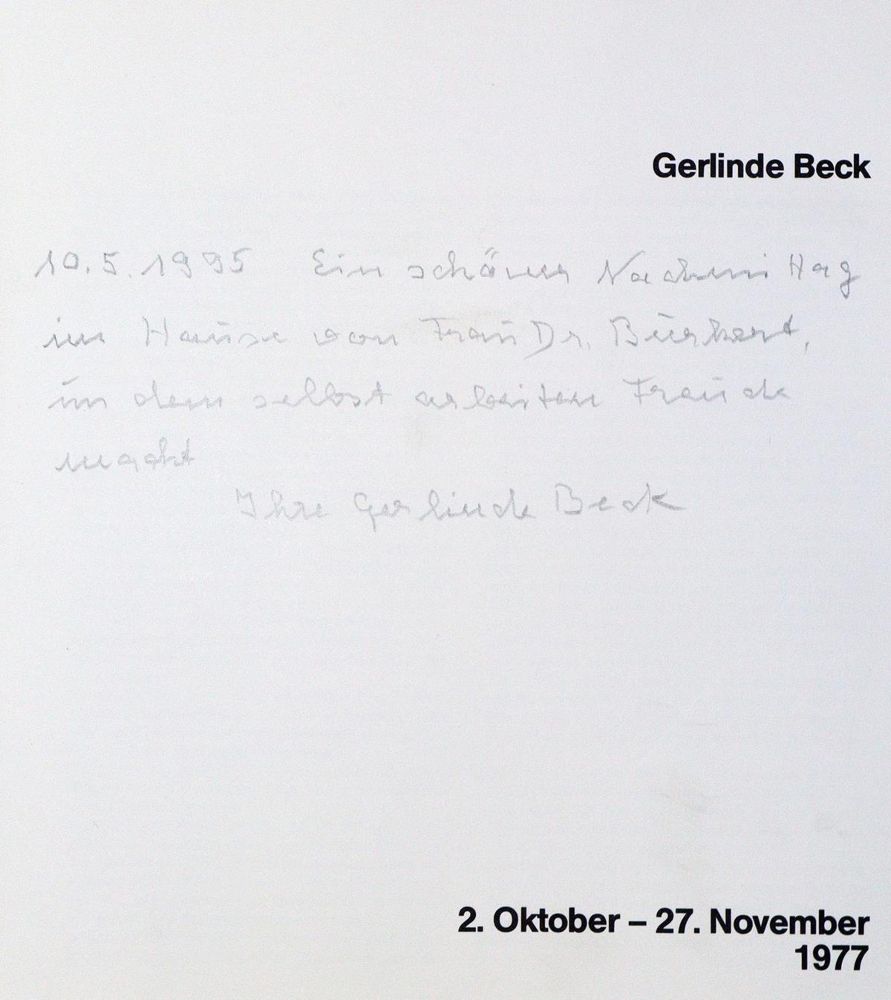 Gerlinde Beck
10.5.1995 Ein schöner Nachmittag
im Hause von Frau Dr. Burkert,
in dem selbst arbeiten Freude
macht
Ihre Gerlinde Beck
2. Oktober – 27. November
1977